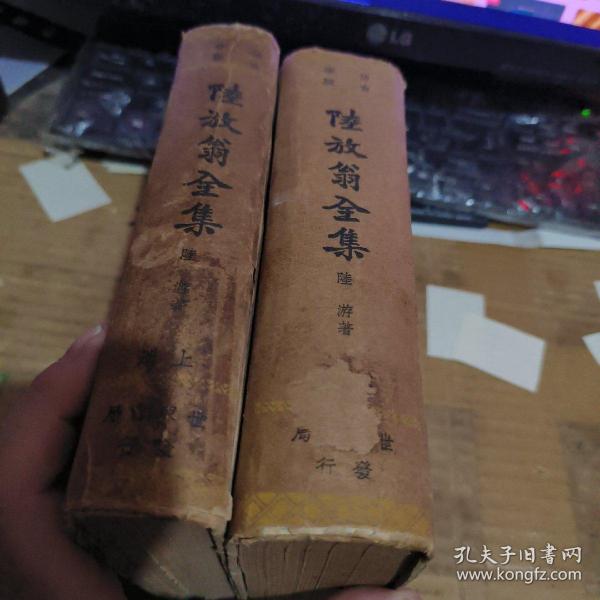 LG
陸放翁全集
陸游著
上
世
局
陸放翁全集
陸游著
世
局
發行
孔夫子旧书网
www.kongfz.com